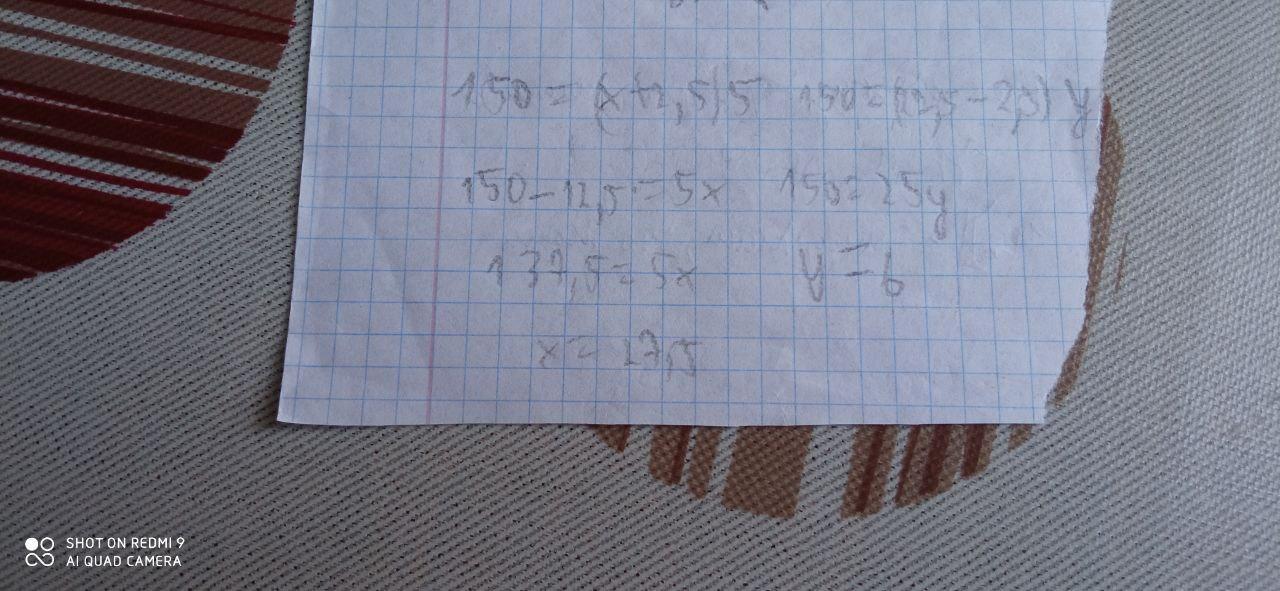 150 = (x+2,5)5 150=(27,5-2,5) y
150-12,5=5x 150=25y
137,5=5x y=6
x= 27,5
SHOT ON REDMI 9
AI QUAD CAMERA